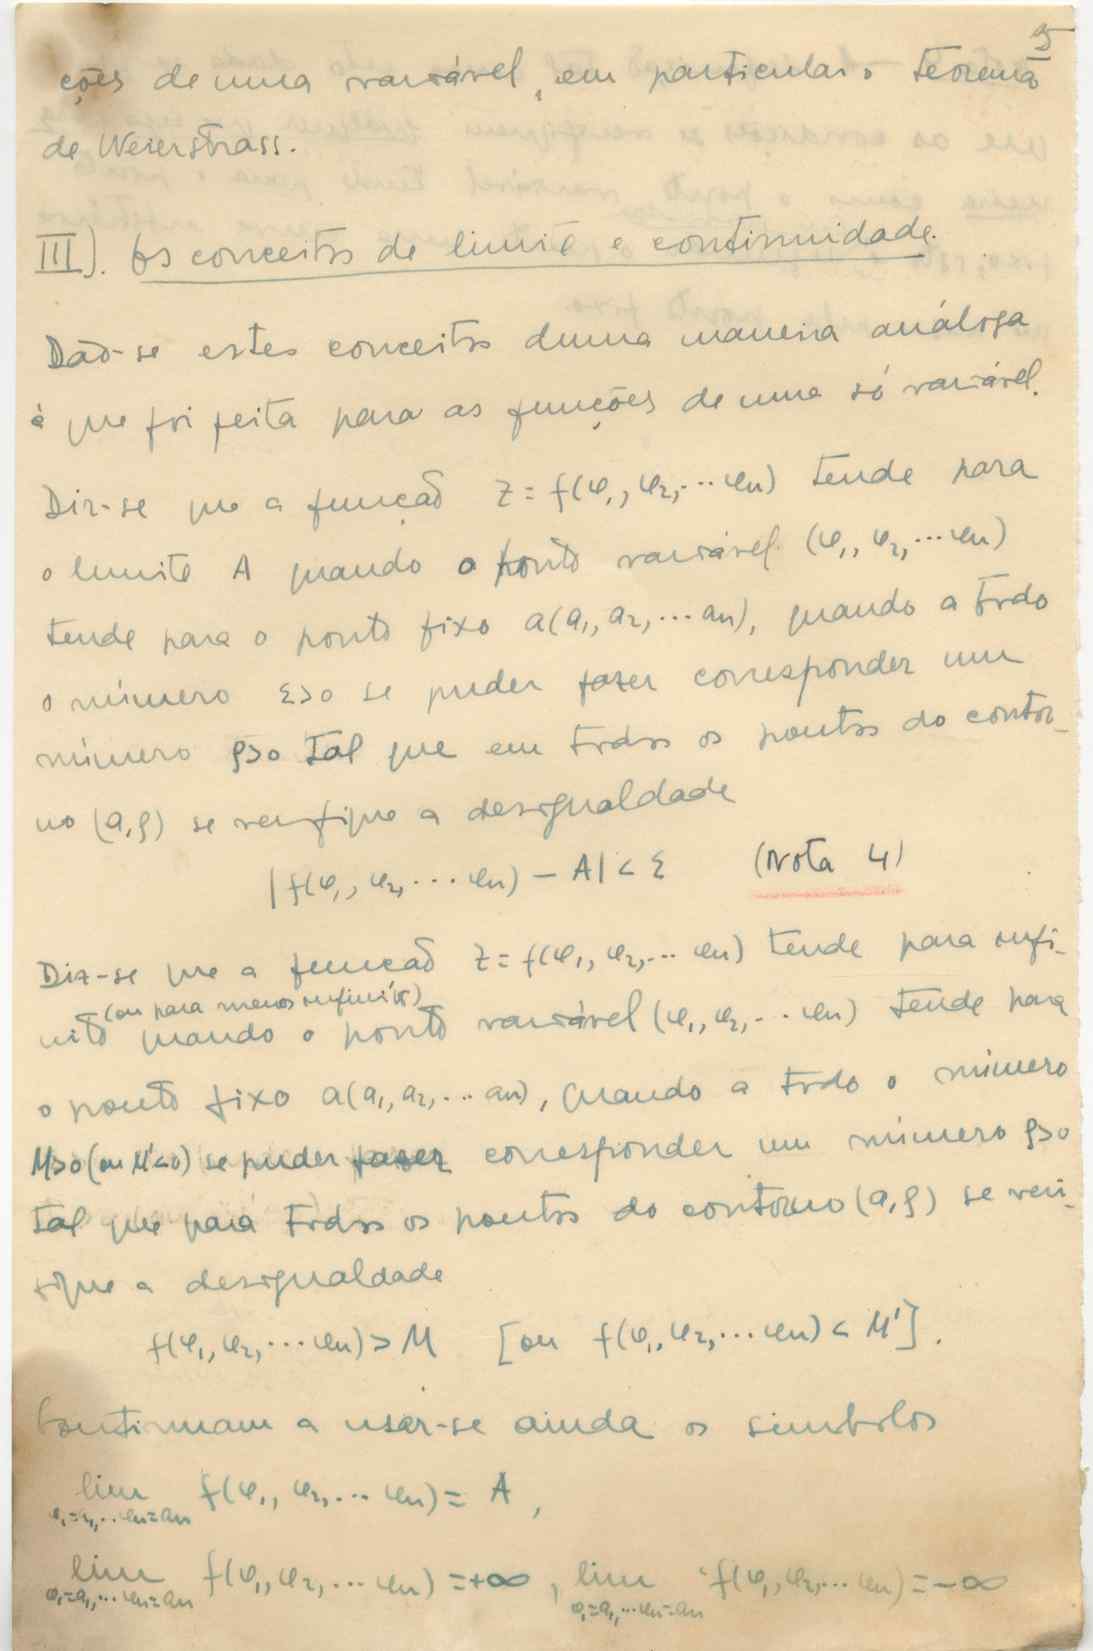 5
ções de uma variável, em particular o teorema
de Weierstrass.
III). Os conceitos de limite e continuidade.
Dão-se estes conceitos duma maneira análoga
à que foi feita para as funções de uma só variável.
Diz-se que a função z = f(φ₁, φ₂, ... φn) tende para
o limite A quando o ponto variável (φ₁, φ₂, ... φn)
tende para o ponto fixo a(a₁, a₂, ... an), quando a todo
o número ε>0 se puder fazer corresponder um
número ρ>0 tal que em todos os pontos do contor-
no (a,ρ) se verifique a desigualdade
|f(φ₁, φ₂, ... φn) – A| < ε (Nota 4)
Diz-se que a função z = f(φ₁, φ₂, ... φn) tende para infi-
(ou para menos infinito)
nito quando o ponto variável (φ₁, φ₂, ... φn) tende para
o ponto fixo a(a₁, a₂, ... an), quando a todo o número
M>0 (ou M'<0) se puder fazer corresponder um número ρ>0
tal que para todos os pontos do contorno (a,ρ) se veri-
fique a desigualdade
f(φ₁, φ₂, ... φn) > M [ou f(φ₁, φ₂, ... φn) < M'].
Continuam a usar-se ainda os simbolos
lim f(φ₁, φ₂, ... φn) = A,
φ₁=a₁, ... φn=an
lim f(φ₁, φ₂, ... φn) = +∞, lim f(φ₁, φ₂, ... φn) = –∞
φ₁=a₁, ... φn=an φ₁=a₁, ... φn=an